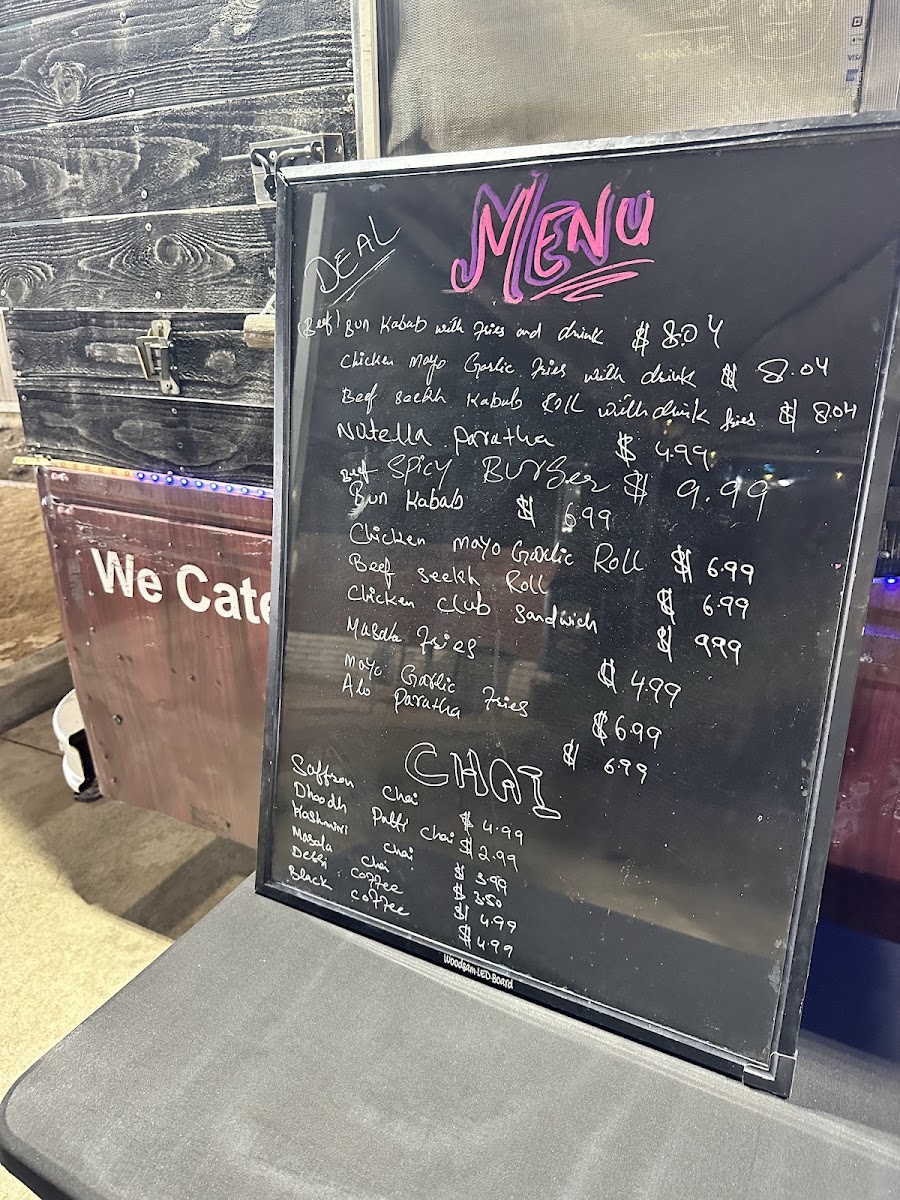 MENU
DEAL
(Beef) Bun Kabab with fries and drink $ 8.04
Chicken Mayo Garlic fries with drink $ 8.04
Beef seekh Kabab Roll with drink fries $ 8.04
Nutella paratha $ 4.99
Beef SPICY BURGer $ 9.99
Bun Kabab $ 6.99
Chicken mayo Garlic Roll $ 6.99
Beef seekh Roll $ 6.99
Chicken club sandwich $ 9.99
Masala fries $ 4.99
Mayo Garlic fries $ 6.99
Alo paratha $ 6.99
CHAI
Saffron chai $ 4.99
Dhoodh Patti chai $ 2.99
Kashmiri chai $ 3.99
Masala chai $ 3.50
Desi coffee $ 4.99
Black coffee $ 4.99
Woodsam-LED-Board
We Cate
VISA